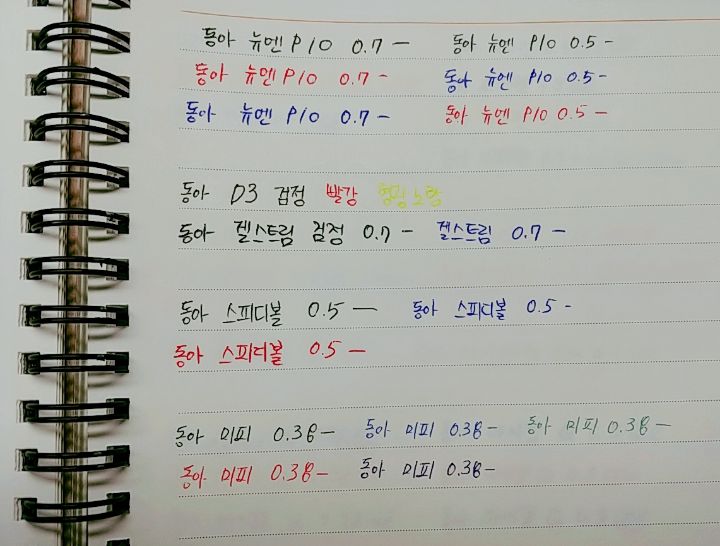 동아 뉴엔 P/O 0.7 — 동아 뉴엔 P/O 0.5 -
동아 뉴엔 P/O 0.7 - 동아 뉴엔 P/O 0.5 -
동아 뉴엔 P/O 0.7 - 동아 뉴엔 P/O 0.5 -
동아 D3 검정 빨강 형광노랑
동아 젤스트림 검정 0.7 - 젤스트림 0.7 -
동아 스피디볼 0.5 — 동아 스피디볼 0.5 -
동아 스피디볼 0.5 —
동아 미피 0.38 - 동아 미피 0.38 - 동아 미피 0.38 -
동아 미피 0.38 - 동아 미피 0.38 -